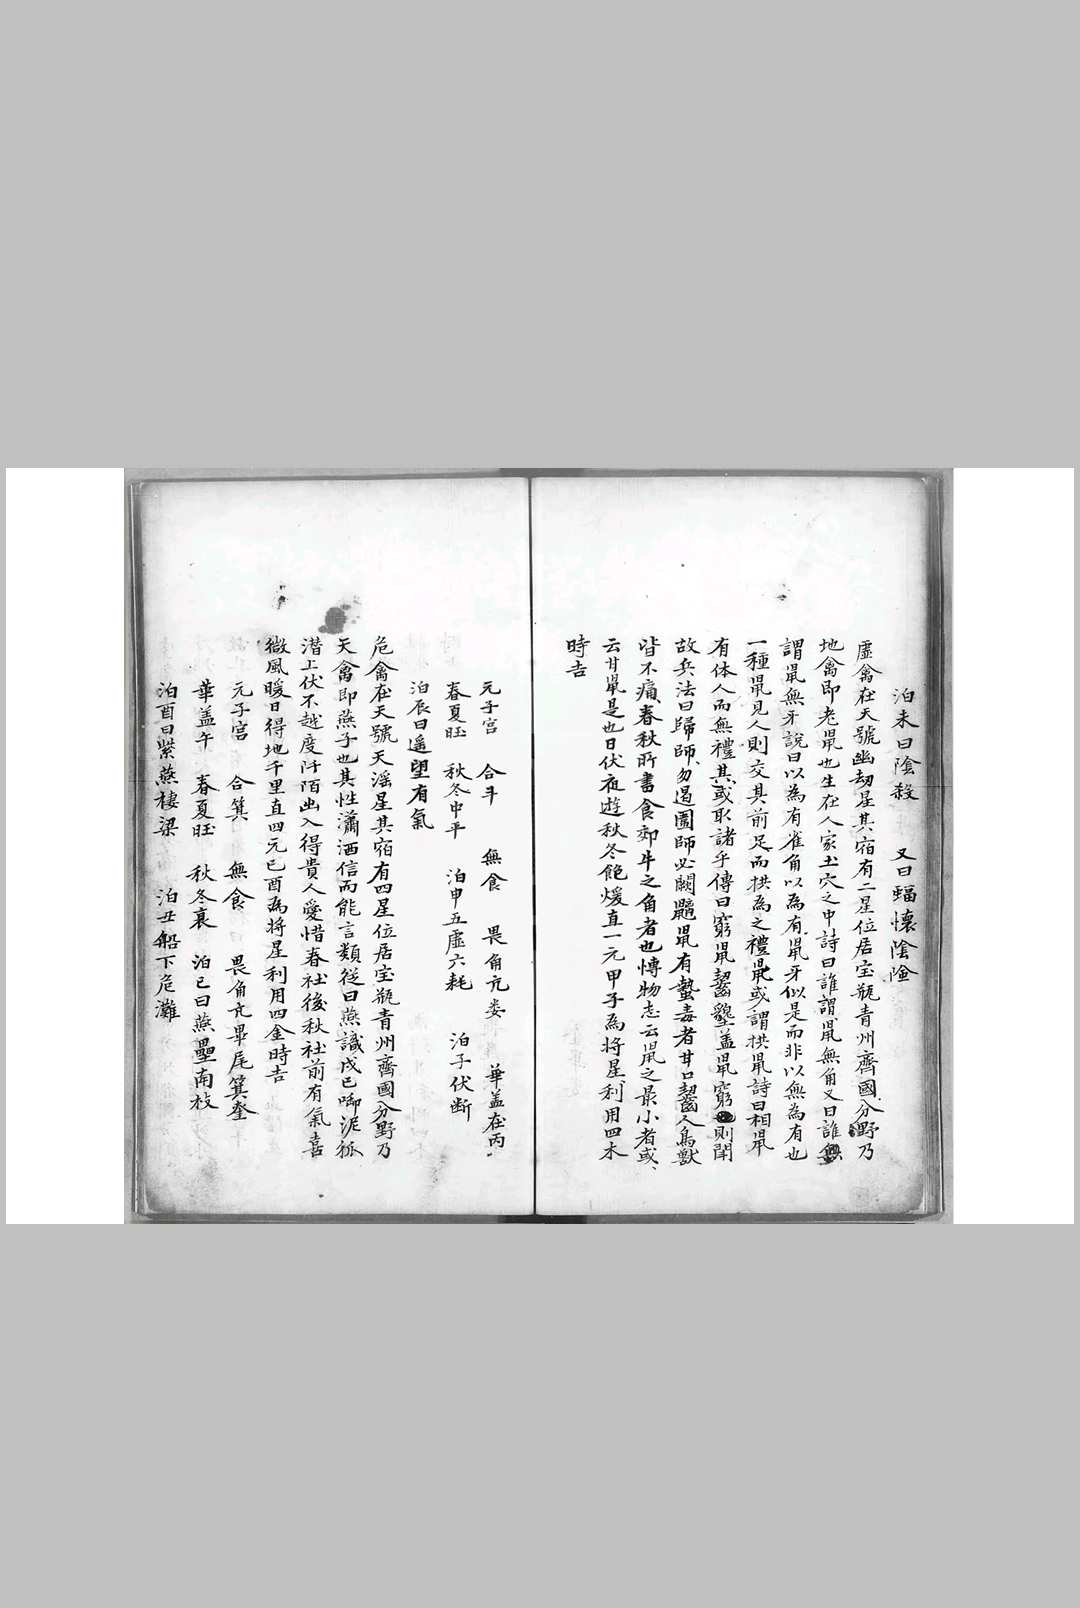 泊未曰陰殺 又曰蝠懷陰險
虛禽在天號幽刼星其宿有二星位居宝瓶青州齊國分野乃
地禽即老鼠也生在人家土穴之中詩曰誰謂鼠無角又曰誰無
謂鼠無牙說曰以為有雀角以為有鼠牙似是而非以無為有也
一種鼠見人則交其前足而拱為之禮鼠或謂拱鼠詩曰相鼠
有体人而無禮其或取諸乎傳曰窮鼠齧蓋鼠窮則閗
故兵法曰歸師勿遏圍師必闕鼷鼠有螫毒者甘口齧人鳥獸
皆不痛春秋所書食郊牛之角者也博物志云鼠之最小者或
云甘鼠是也日伏夜遊秋冬飽煖直一元甲子為將星利用四木
時吉
元子宫 合斗 無食 畏角亢娄 華盖在丙
春夏旺 秋冬中平 泊申五虛六耗 泊子伏断
泊辰曰遥望有氣
危禽在天號天滛星其宿有四星位居宝瓶青州齊國分野乃
天禽即燕子也其性瀟洒信而能言類従曰燕識戊巳啣泥狐
潜上伏不越度阡陌出入得貴人愛惜春社後秋社前有氣喜
微風暖日得地千里直四元巳酉為將星利用四金時吉
元子宮 合箕 無食 畏角亢畢尾箕奎
華盖午 春夏旺 秋冬衰 泊巳曰燕壘南枝
泊酉曰紫燕棲梁 泊丑船下危灘